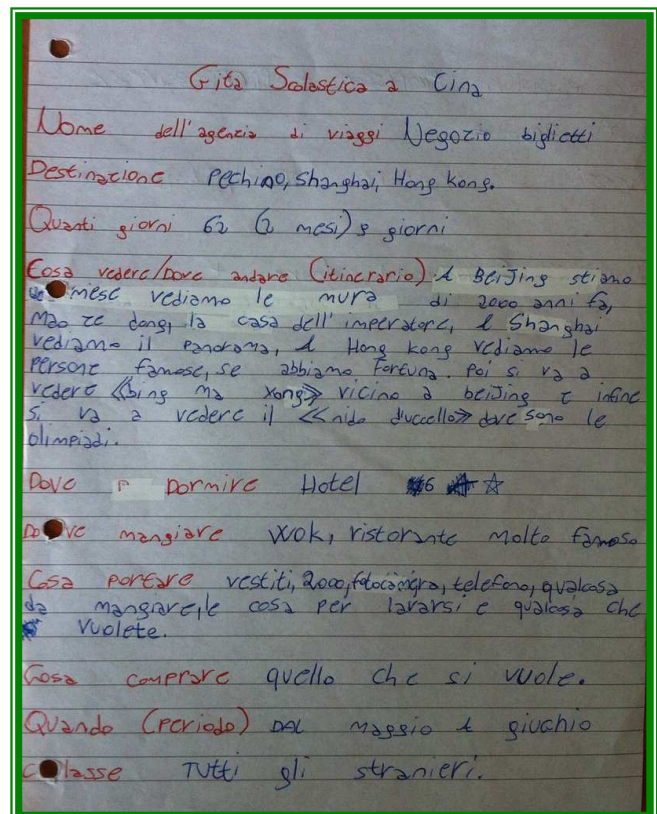 Gita Scolastica a Cina
Nome dell'agenzia di viaggi Negozio biglietti
Destinazione Pechino, Shanghai, Hong Kong.
Quanti giorni 62 (2 mesi) e giorni
Cosa vedere/Dove andare (itinerario) A BeiJing stiamo
mese vediamo le mura di 2000 anni fa,
Mao ze dong, la casa dell'imperatore, A Shanghai
vediamo il panorama, A Hong Kong vediamo le
persone famose, se abbiamo fortuna. Poi si va a
vedere «bing ma yong» vicino a beiJing e infine
si va a vedere il «nido d'uccello» dove sono le
olimpiadi.
Dove Dormire Hotel 6 ☆
Dove mangiare wok, ristorante molto famoso
Cosa portare vestiti, 2000, fotocamera, telefono, qualcosa
da mangiare, le cosa per lavarsi e qualcosa che
vuolete.
Cosa comprare quello che si vuole.
Quando (periodo) DAL maggio A giuchio
classe Tutti gli stranieri.